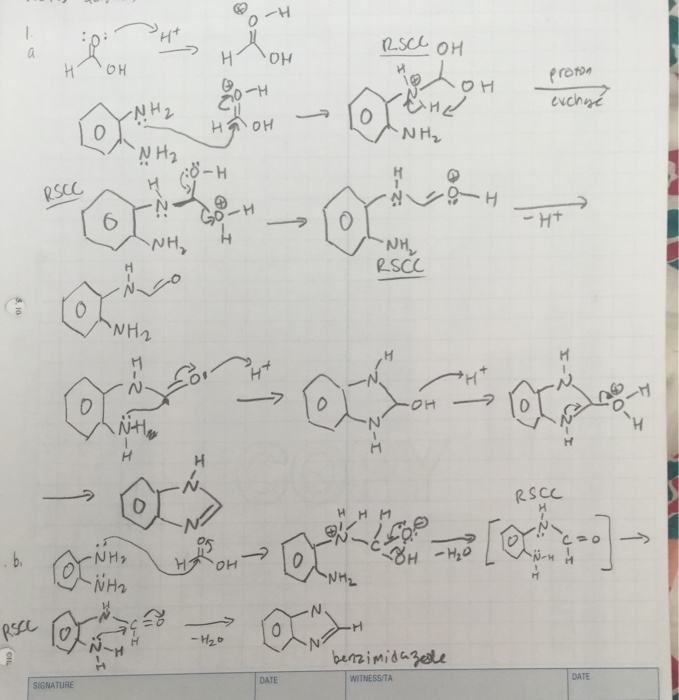 1.
a
:O: H+ ⊕ O-H
H OH H OH
RSCC OH
NH2 ⊕ O-H H ⊕ N OH
H OH H proton
NH2 NH2 exchange
RSCC H :O-H H
N ⊕ O-H N ⊕ O-H
H -H+
NH2 NH2
RSCC
H
N O
NH2
H H H
N O H+ N H+ N ⊕ H
OH O
N-H N N H
H H H
H
N
N
RSCC
b. NH2 O H H H O⊖ H
H OH ⊕ N C OH -H2O N C=O
NH2 NH2 N-H H
H
RSCC H
N C=O N
H -H2O H
N-H N
H benzimidazole
SIGNATURE DATE WITNESS/TA DATE